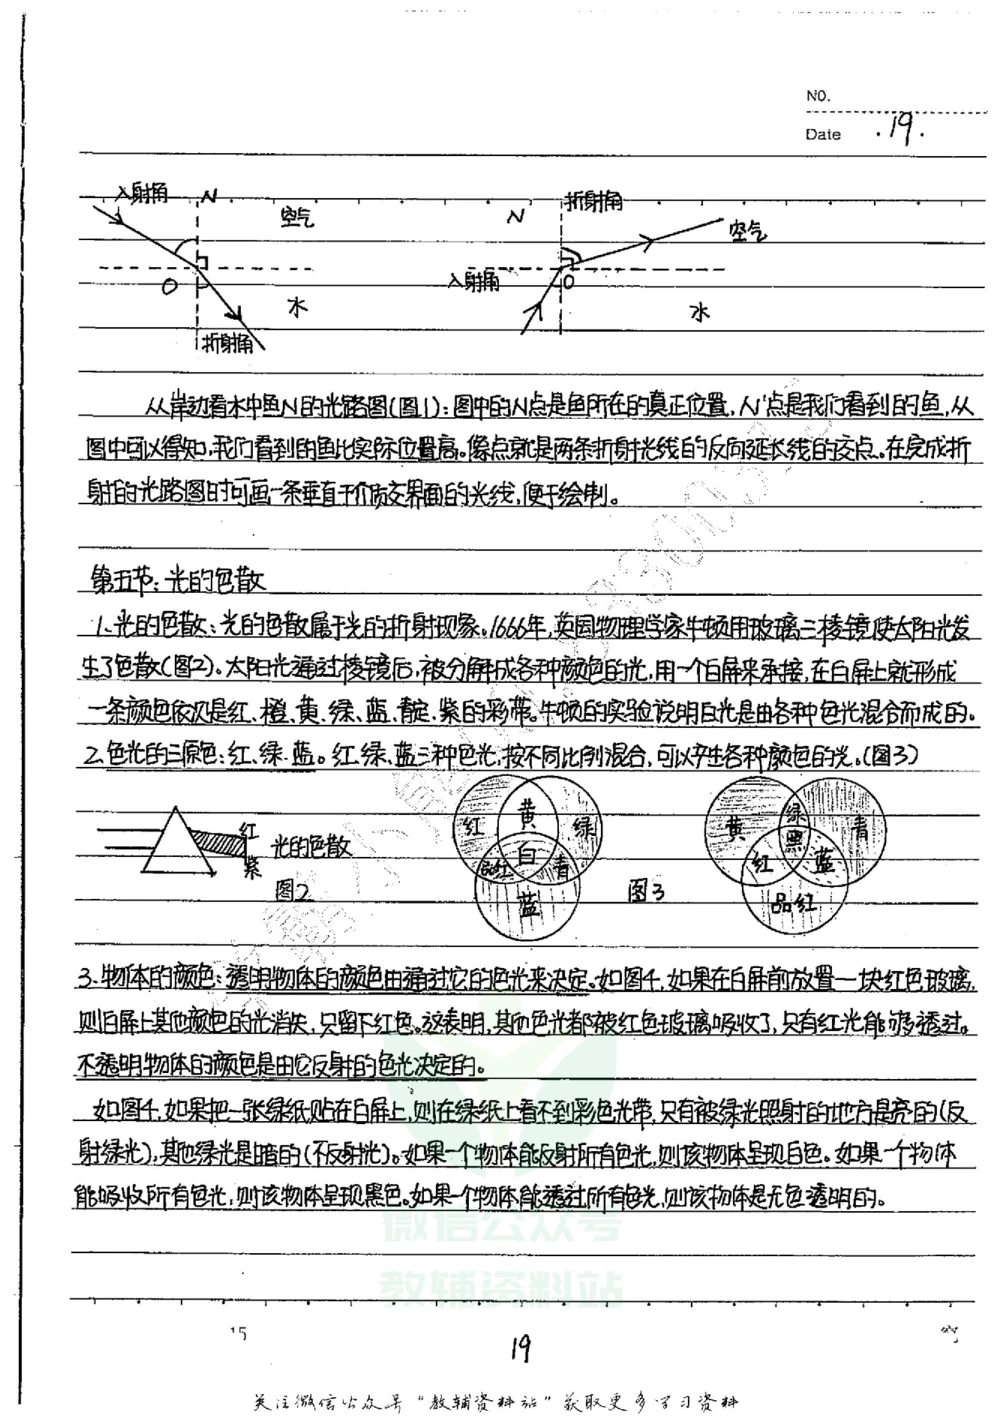 NO.
Date .19.
入射角 N 空气
O 水
折射角
N 折射角 空气
入射角 O 水
从岸边看水中鱼N的光路图(图1):图中的N点是鱼所在的真正位置,N'点是我们看到的鱼,从
图中可以得知,我们看到的鱼比实际位置高。像点就是两条折射光线的反向延长线的交点。在完成折
射的光路图时可画一条垂直于介质交界面的光线,便于绘制。
第五节:光的色散
1、光的色散:光的色散属于光的折射现象。1666年,英国物理学家牛顿用玻璃三棱镜使太阳光发
生了色散(图2)。太阳光通过棱镜后,被分解成各种颜色的光,用一个白屏来承接,在白屏上就形成
一条颜色依次是红、橙、黄、绿、蓝、靛、紫的彩带。牛顿的实验说明白光是由各种色光混合而成的。
2.色光的三原色:红、绿、蓝。红、绿、蓝三种色光,按不同比例混合,可以产生各种颜色的光。(图3)
红
紫
光的色散
图2
黄
红 绿
白
品红 青
蓝
图3
绿
黄 青
黑
红 蓝
品红
3、物体的颜色:透明物体的颜色由通过它的色光来决定。如图4,如果在白屏前放置一块红色玻璃,
则白屏上其他颜色的光消失,只留下红色。这表明,其他色光都被红色玻璃吸收了,只有红光能够透过。
不透明物体的颜色是由它反射的色光决定的。
如图4,如果把一张绿纸贴在白屏上,则在绿纸上看不到彩色光带,只有被绿光照射的地方是亮的(反
射绿光),其他绿光是暗的(不反射光)。如果一个物体能反射所有色光,则该物体呈现白色。如果一个物体
能吸收所有色光,则该物体呈现黑色。如果一个物体能透过所有色光,则该物体是无色透明的。
微信公众号
教辅资料站
15
19
关注微信公众号“教辅资料站”获取更多学习资料